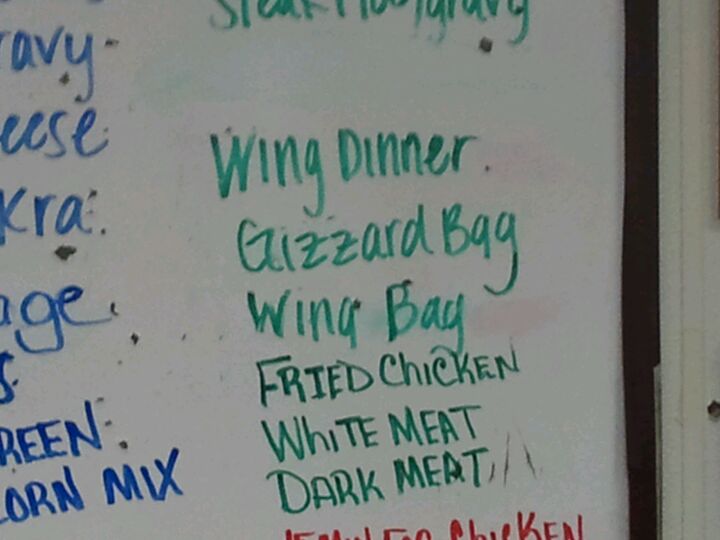 avy
eese
kra
age
REEN
CORN MIX
Wing Dinner
Gizzard Bag
Wing Bag
FRIED ChicKEN
WhiTE MEAT
DARK MEAT
ChicKEN